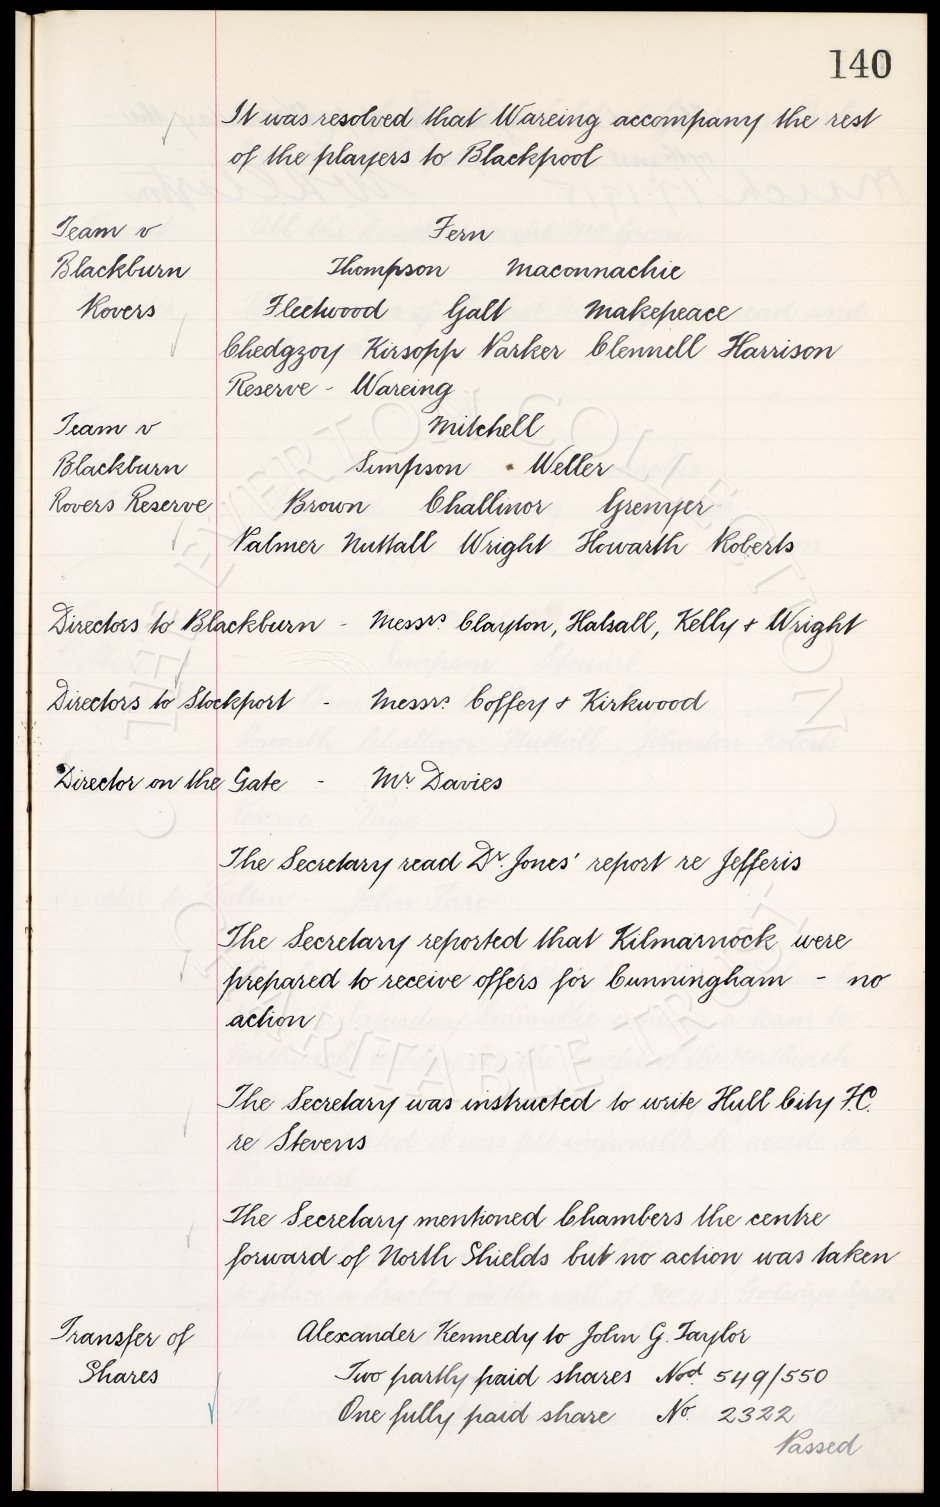 140
It was resolved that Wareing accompany the rest
of the players to Blackpool
Team v
Blackburn
Rovers
Fern
Thompson Maconnachie
Fleetwood Galt Makepeace
Chedgzoy Kirsopp Parker Clennell Harrison
Reserve - Wareing
Team v
Blackburn
Rovers Reserve
Mitchell
Simpson Weller
Brown Challinor Grenyer
Palmer Nuttall Wright Howarth Roberts
Directors to Blackburn - Messrs. Clayton, Halsall, Kelly & Wright
Directors to Stockport - Messrs. Coffey & Kirkwood
Director on the Gate - Mr. Davies
The Secretary read Dr. Jones' report re Jefferis
The Secretary reported that Kilmarnock were
prepared to receive offers for Cunningham - no
action
The Secretary was instructed to write Hull City F.C.
re Stevens
The Secretary mentioned Chambers the centre
forward of North Shields but no action was taken
Transfer of
Shares
Alexander Kennedy to John G. Taylor
Two partly paid shares Nod. 549/550
One fully paid share No. 2322
Passed
THE EVERTON COLLECTION
CHARITABLE TRUST